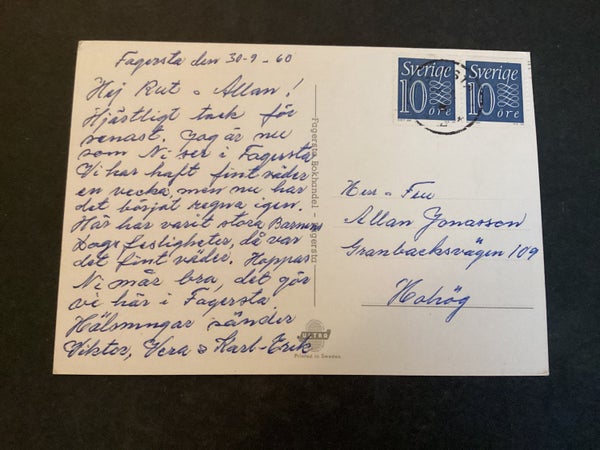 Fagersta den 30-9-60
Hej Rut o Allan!
Hjärtligt tack för
senast. Jag är nu
som Ni ser i Fagersta
Vi har haft fint väder
en vecka, men nu har
det börjat regna igen.
Här har varit stora Barnens
Dags festligheter, då var
det fint väder. Hoppas
Ni mår bra, det gör
vi här i Fagersta.
Hälsningar sänder
Viktor, Vera o Karl-Erik
Fagersta Bokhandel - Fagersta
Printed in Sweden
Sverige
10
öre
Sverige
10
öre
Herr o Fru
Allan Jonasson
Granbacksvägen 109
Hohög